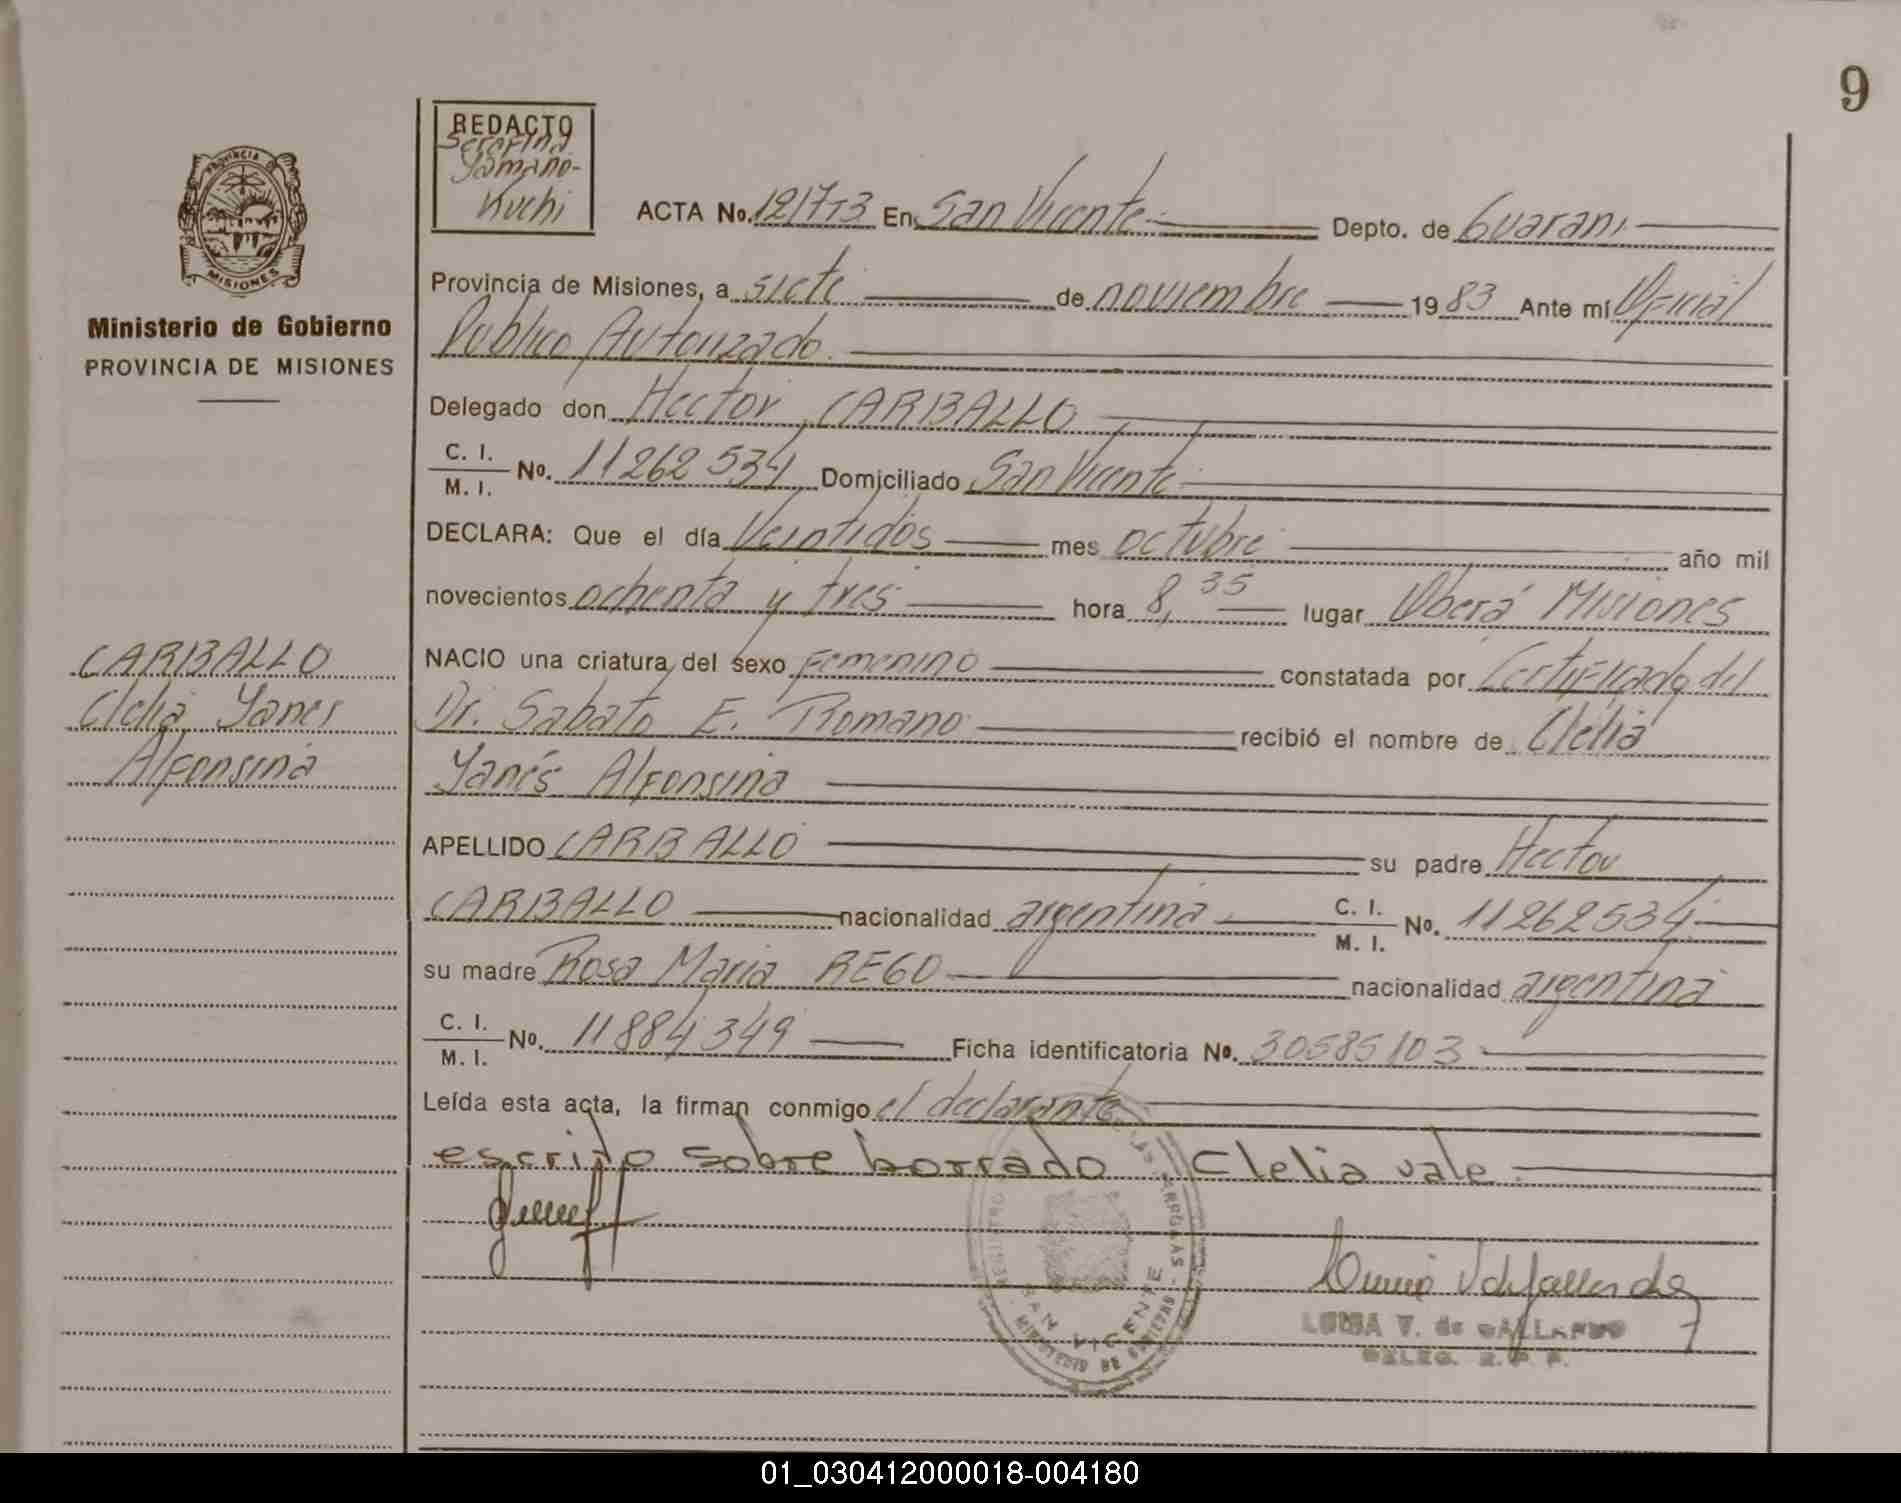 9
REDACTO
Serafina
Yamano-
Kuchi
PROVINCIA DE
MISIONES
Ministerio de Gobierno
PROVINCIA DE MISIONES
ACTA No. En San Vicente Depto. de Guarani
Provincia de Misiones, a siete de noviembre 1983 Ante mí Oficial
Publico Autorizado.
Delegado don Hector CARBALLO
C. I.
M. I. No. 11262534 Domiciliado San Vicente
DECLARA: Que el día Veintidos mes octubre año mil
novecientos ochenta y tres hora 8,35 lugar Oberá Misiones
NACIO una criatura del sexo femenino constatada por Certificado del
Dr. Sabato E. Romano recibió el nombre de Clelia
Yanés Alfonsina
APELLIDO CARBALLO su padre Hector
CARBALLO nacionalidad argentina C. I.
M. I. No. 11262534
su madre Rosa Maria REGO nacionalidad argentina
C. I.
M. I. No. 11884349 Ficha identificatoria No. 30585103
Leída esta acta, la firman conmigo el declarante
escrito sobre borrado Clelia vale.
CARBALLO
Clelia Yanes
Alfonsina
SAN VICENTE
LUISA V. de GALLARDO
DELEG. R. P. P.
01_030412000018-004180